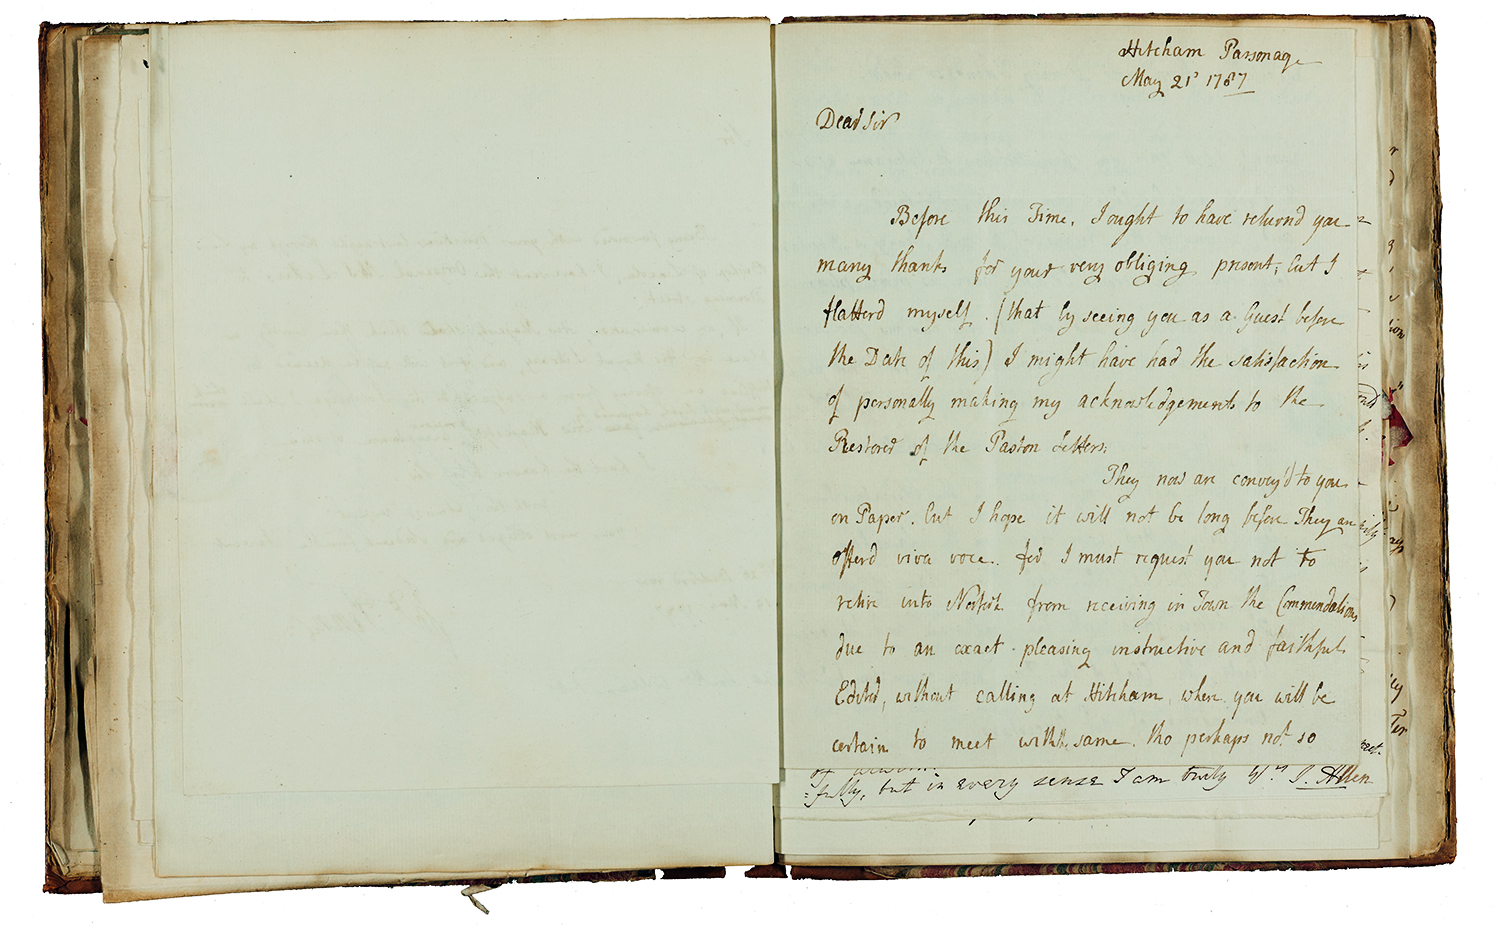 Hitcham Parsonage
May 21st 1787
Dear Sir
Before this Time, I ought to have returnd you
many thanks for your very obliging present; but I
flatterd myself (that by seeing you as a Guest before
the Date of this) I might have had the satisfaction
of personally making my acknowledgements to the
Restorer of the Paston Letters.
They now are convey'd to you
on Paper, but I hope it will not be long before They are
offerd viva voce. for I must request you not to
retire into Norfolk from receiving in Town the Commendations
due to an exact pleasing instructive and faithful
Editor, without calling at Hitcham, where you will be
certain to meet with the same. tho perhaps not so
fully, but in every sense I am truly Yrs J. Allen